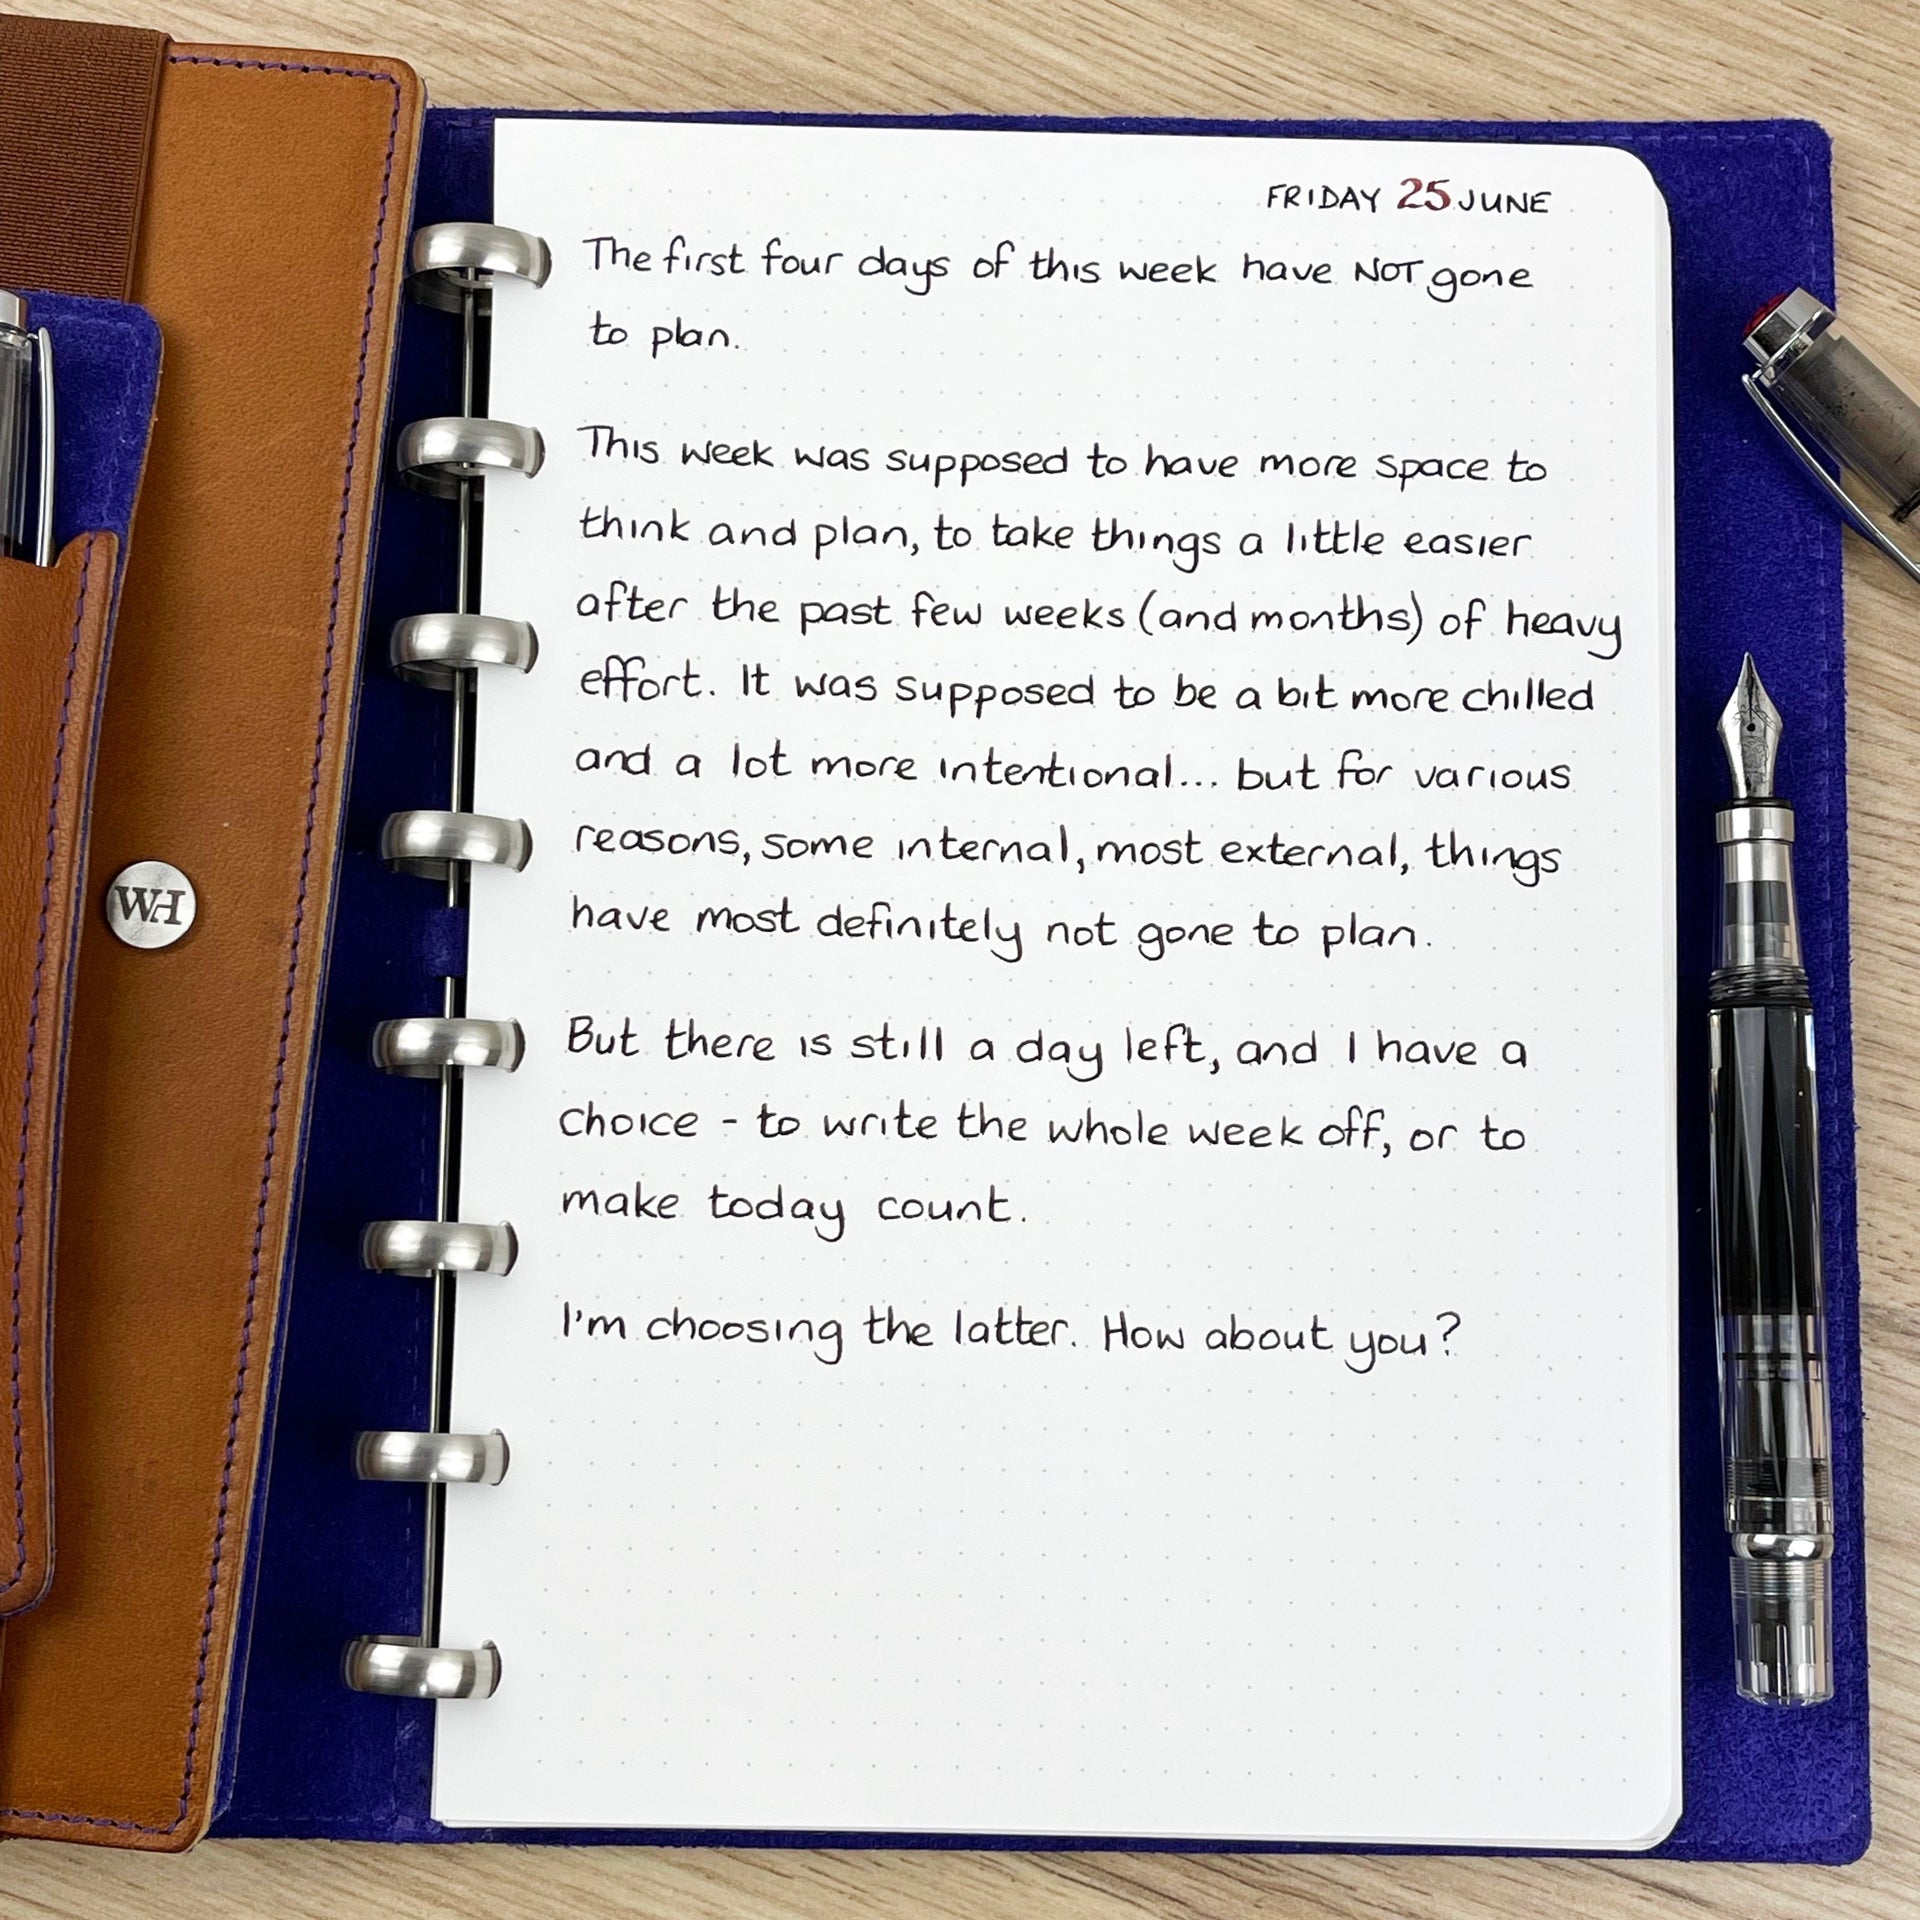 FRIDAY 25 JUNE
The first four days of this week have NOT gone
to plan.
This week was supposed to have more space to
think and plan, to take things a little easier
after the past few weeks (and months) of heavy
effort. It was supposed to be a bit more chilled
and a lot more intentional... but for various
reasons, some internal, most external, things
have most definitely not gone to plan.
But there is still a day left, and I have a
choice - to write the whole week off, or to
make today count.
I'm choosing the latter. How about you?
WH